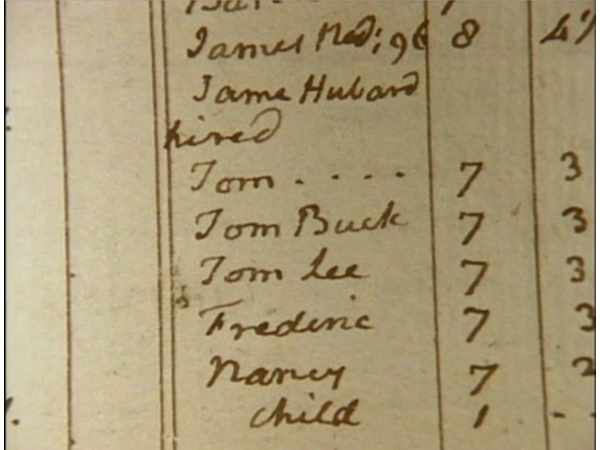 James Red; 96 8 4½
Jame Hubard
hired
Tom . . . . 7 3
Tom Buck 7 3
Tom Lee 7 3
Frederic 7 3
Nancy 7 2
child 1 - -